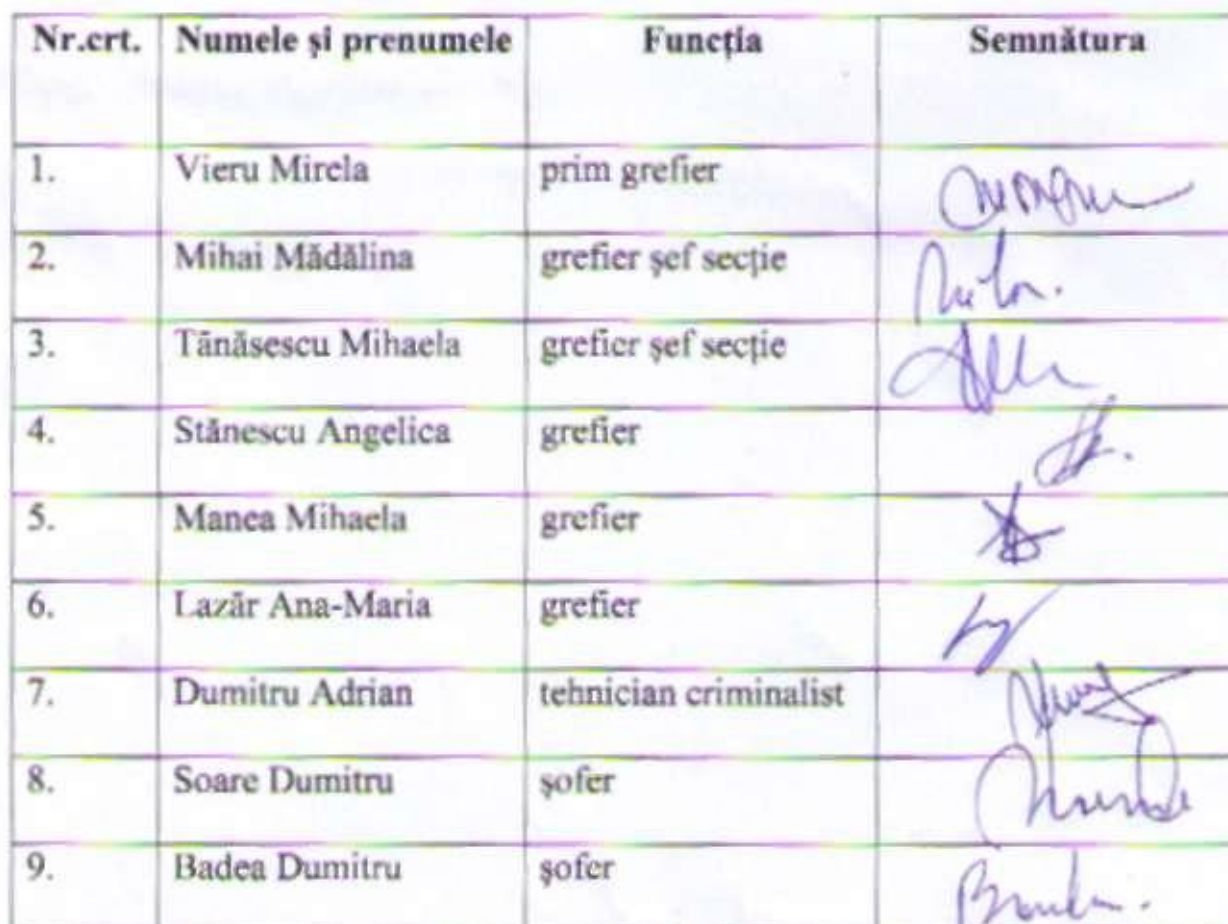 Nr.crt. Numele și prenumele Funcția Semnătura
1. Vieru Mirela prim grefier
2. Mihai Mădălina grefier șef secție
3. Tănăsescu Mihaela grefier șef secție
4. Stănescu Angelica grefier
5. Manea Mihaela grefier
6. Lazăr Ana-Maria grefier
7. Dumitru Adrian tehnician criminalist
8. Soare Dumitru șofer
9. Badea Dumitru șofer